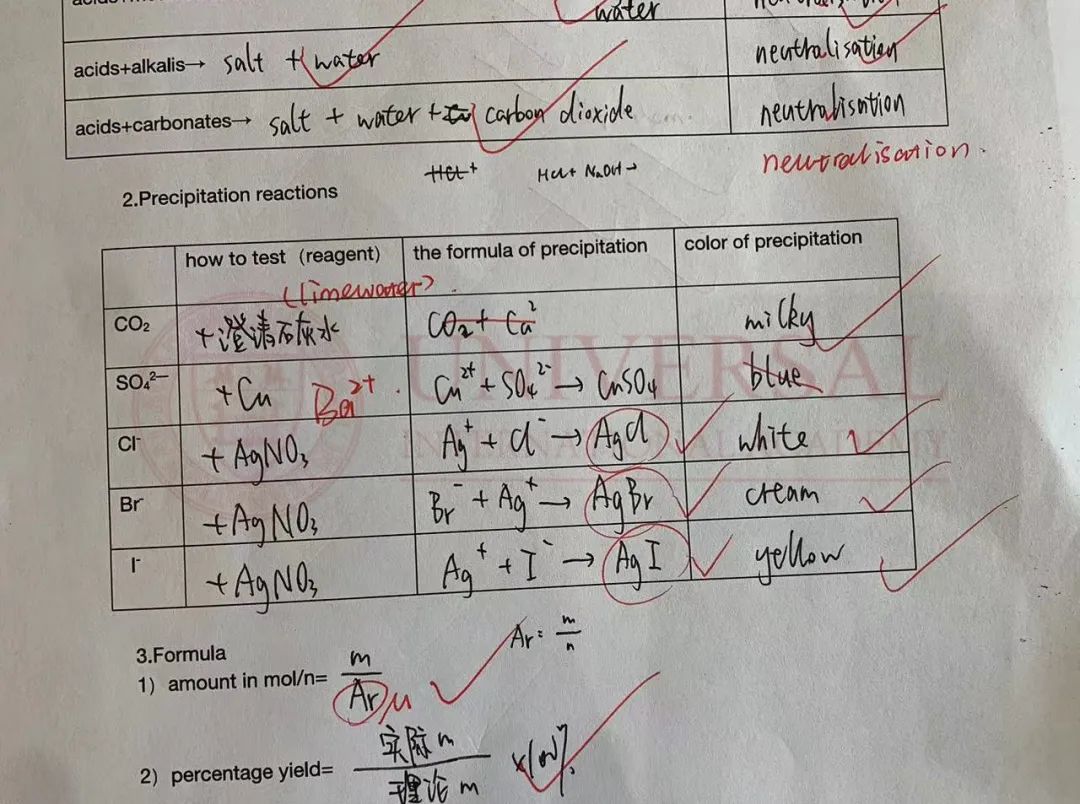 water
acids+alkalis→ salt + water neutralisation
acids+carbonates→ salt + water + carbon dioxide neutralisation
neutralisation.
HCl+ HCl+ NaOH→
2.Precipitation reactions
how to test（reagent) the formula of precipitation color of precipitation
(limewater).
CO₂ +澄清石灰水 CO₂+ Ca² milky
SO₄²⁻ +Cu Ba²⁺. Cu²⁺+SO₄²⁻→CuSO₄ blue
Cl⁻ +AgNO₃ Ag⁺+Cl⁻→AgCl white
Br⁻ +AgNO₃ Br⁻+Ag⁺→AgBr cream
I⁻ +AgNO₃ Ag⁺+I⁻→AgI yellow
UNIVERSAL
INTERNATIONAL ACADEMY
3.Formula Ar= m/n
1）amount in mol/n= m/Ar M
2）percentage yield= 实际m/理论m ×100%